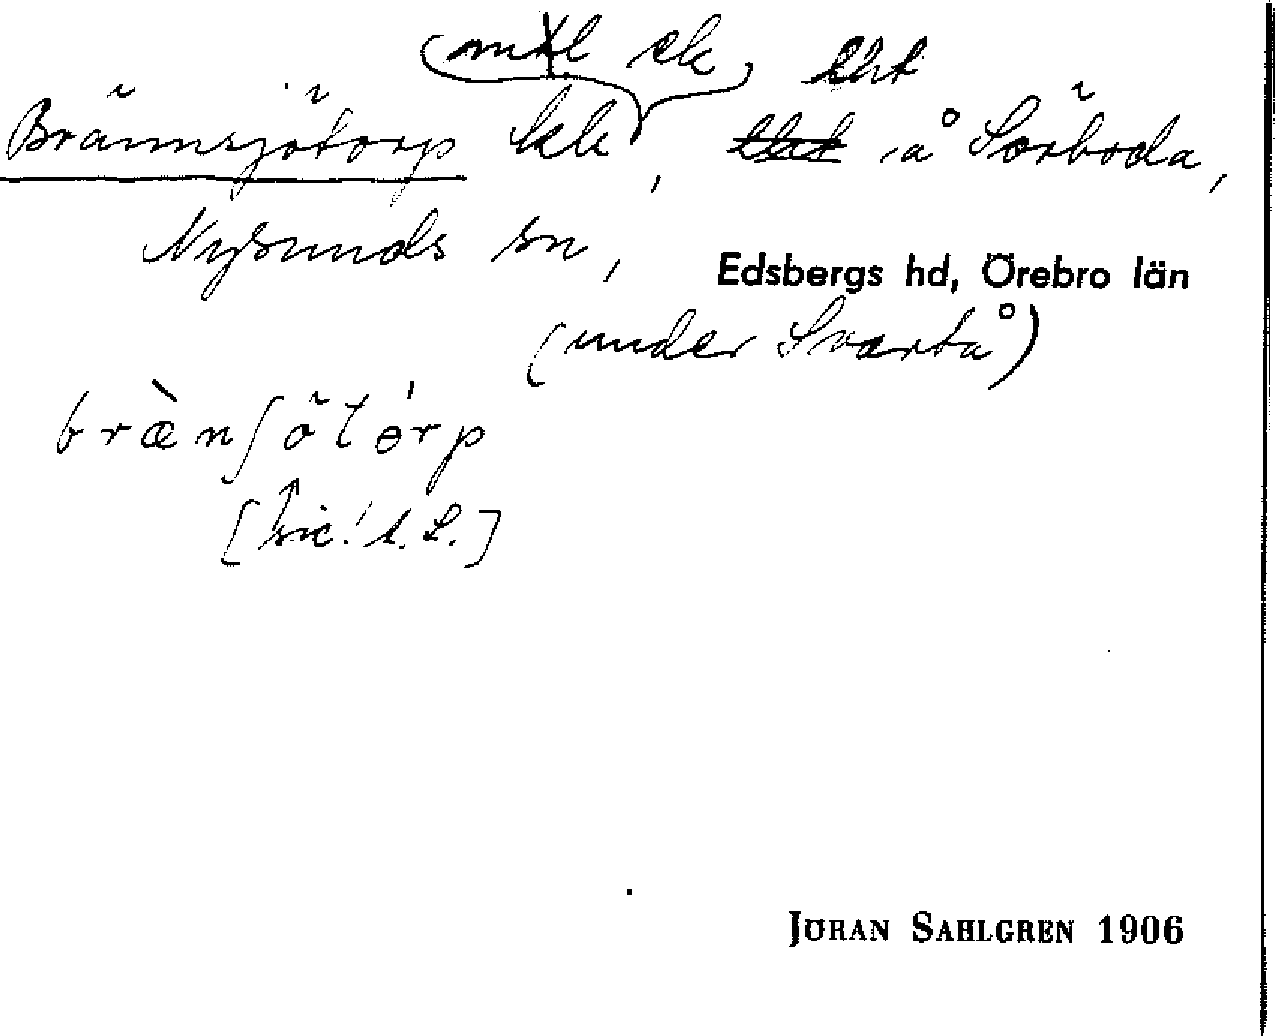 (mtl ek)
Brännsjötorp kk, tht å Sörboda,
Nysunds sn, Edsbergs hd, Örebro län
(under Svartå)
bræ̀nʃötórp
[sic! A. L.]
JÖRAN SAHLGREN 1906